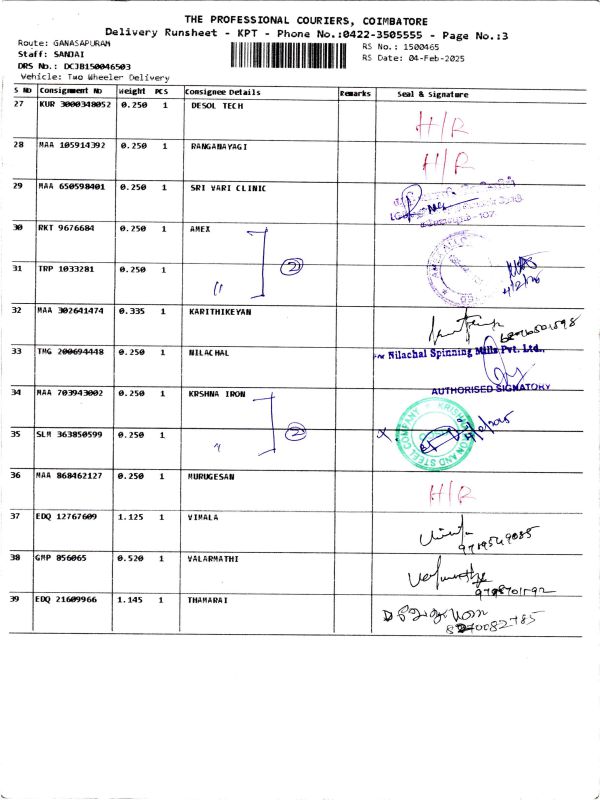 THE PROFESSIONAL COURIERS, COIMBATORE
Delivery Runsheet - KPT - Phone No.:0422-3505555 - Page No.:3
Route: GANASAPURAM
Staff: SANJAI
DRS No.: DCJB150046503
Vehicle: Two Wheeler Delivery
RS No.: 1500465
RS Date: 04-Feb-2025
S NO Consignment NO Weight PCS Consignee Details Remarks Seal & Signature
27 KUR 3000348052 0.250 1 DESOL TECH H/R
28 MAA 105914392 0.250 1 RANGANAYAGI H/R
29 MAA 650598401 0.250 1 SRI VARI CLINIC
30 RKT 9676684 0.250 1 AMEX
31 TRP 1033281 0.250 1 " 2
32 MAA 302641474 0.335 1 KARITHIKEYAN
33 TMG 200694448 0.250 1 NILACHAL For Nilachal Spinning Mills Pvt. Ltd.,
AUTHORISED SIGNATORY
34 MAA 703943002 0.250 1 KRSHNA IRON
35 SLM 363850599 0.250 1 " 2
36 MAA 868462127 0.250 1 MURUGESAN H/R
37 EDQ 12767609 1.125 1 VIMALA
38 GMP 856065 0.520 1 VALARMATHI
39 EDQ 21609966 1.145 1 THAMARAI